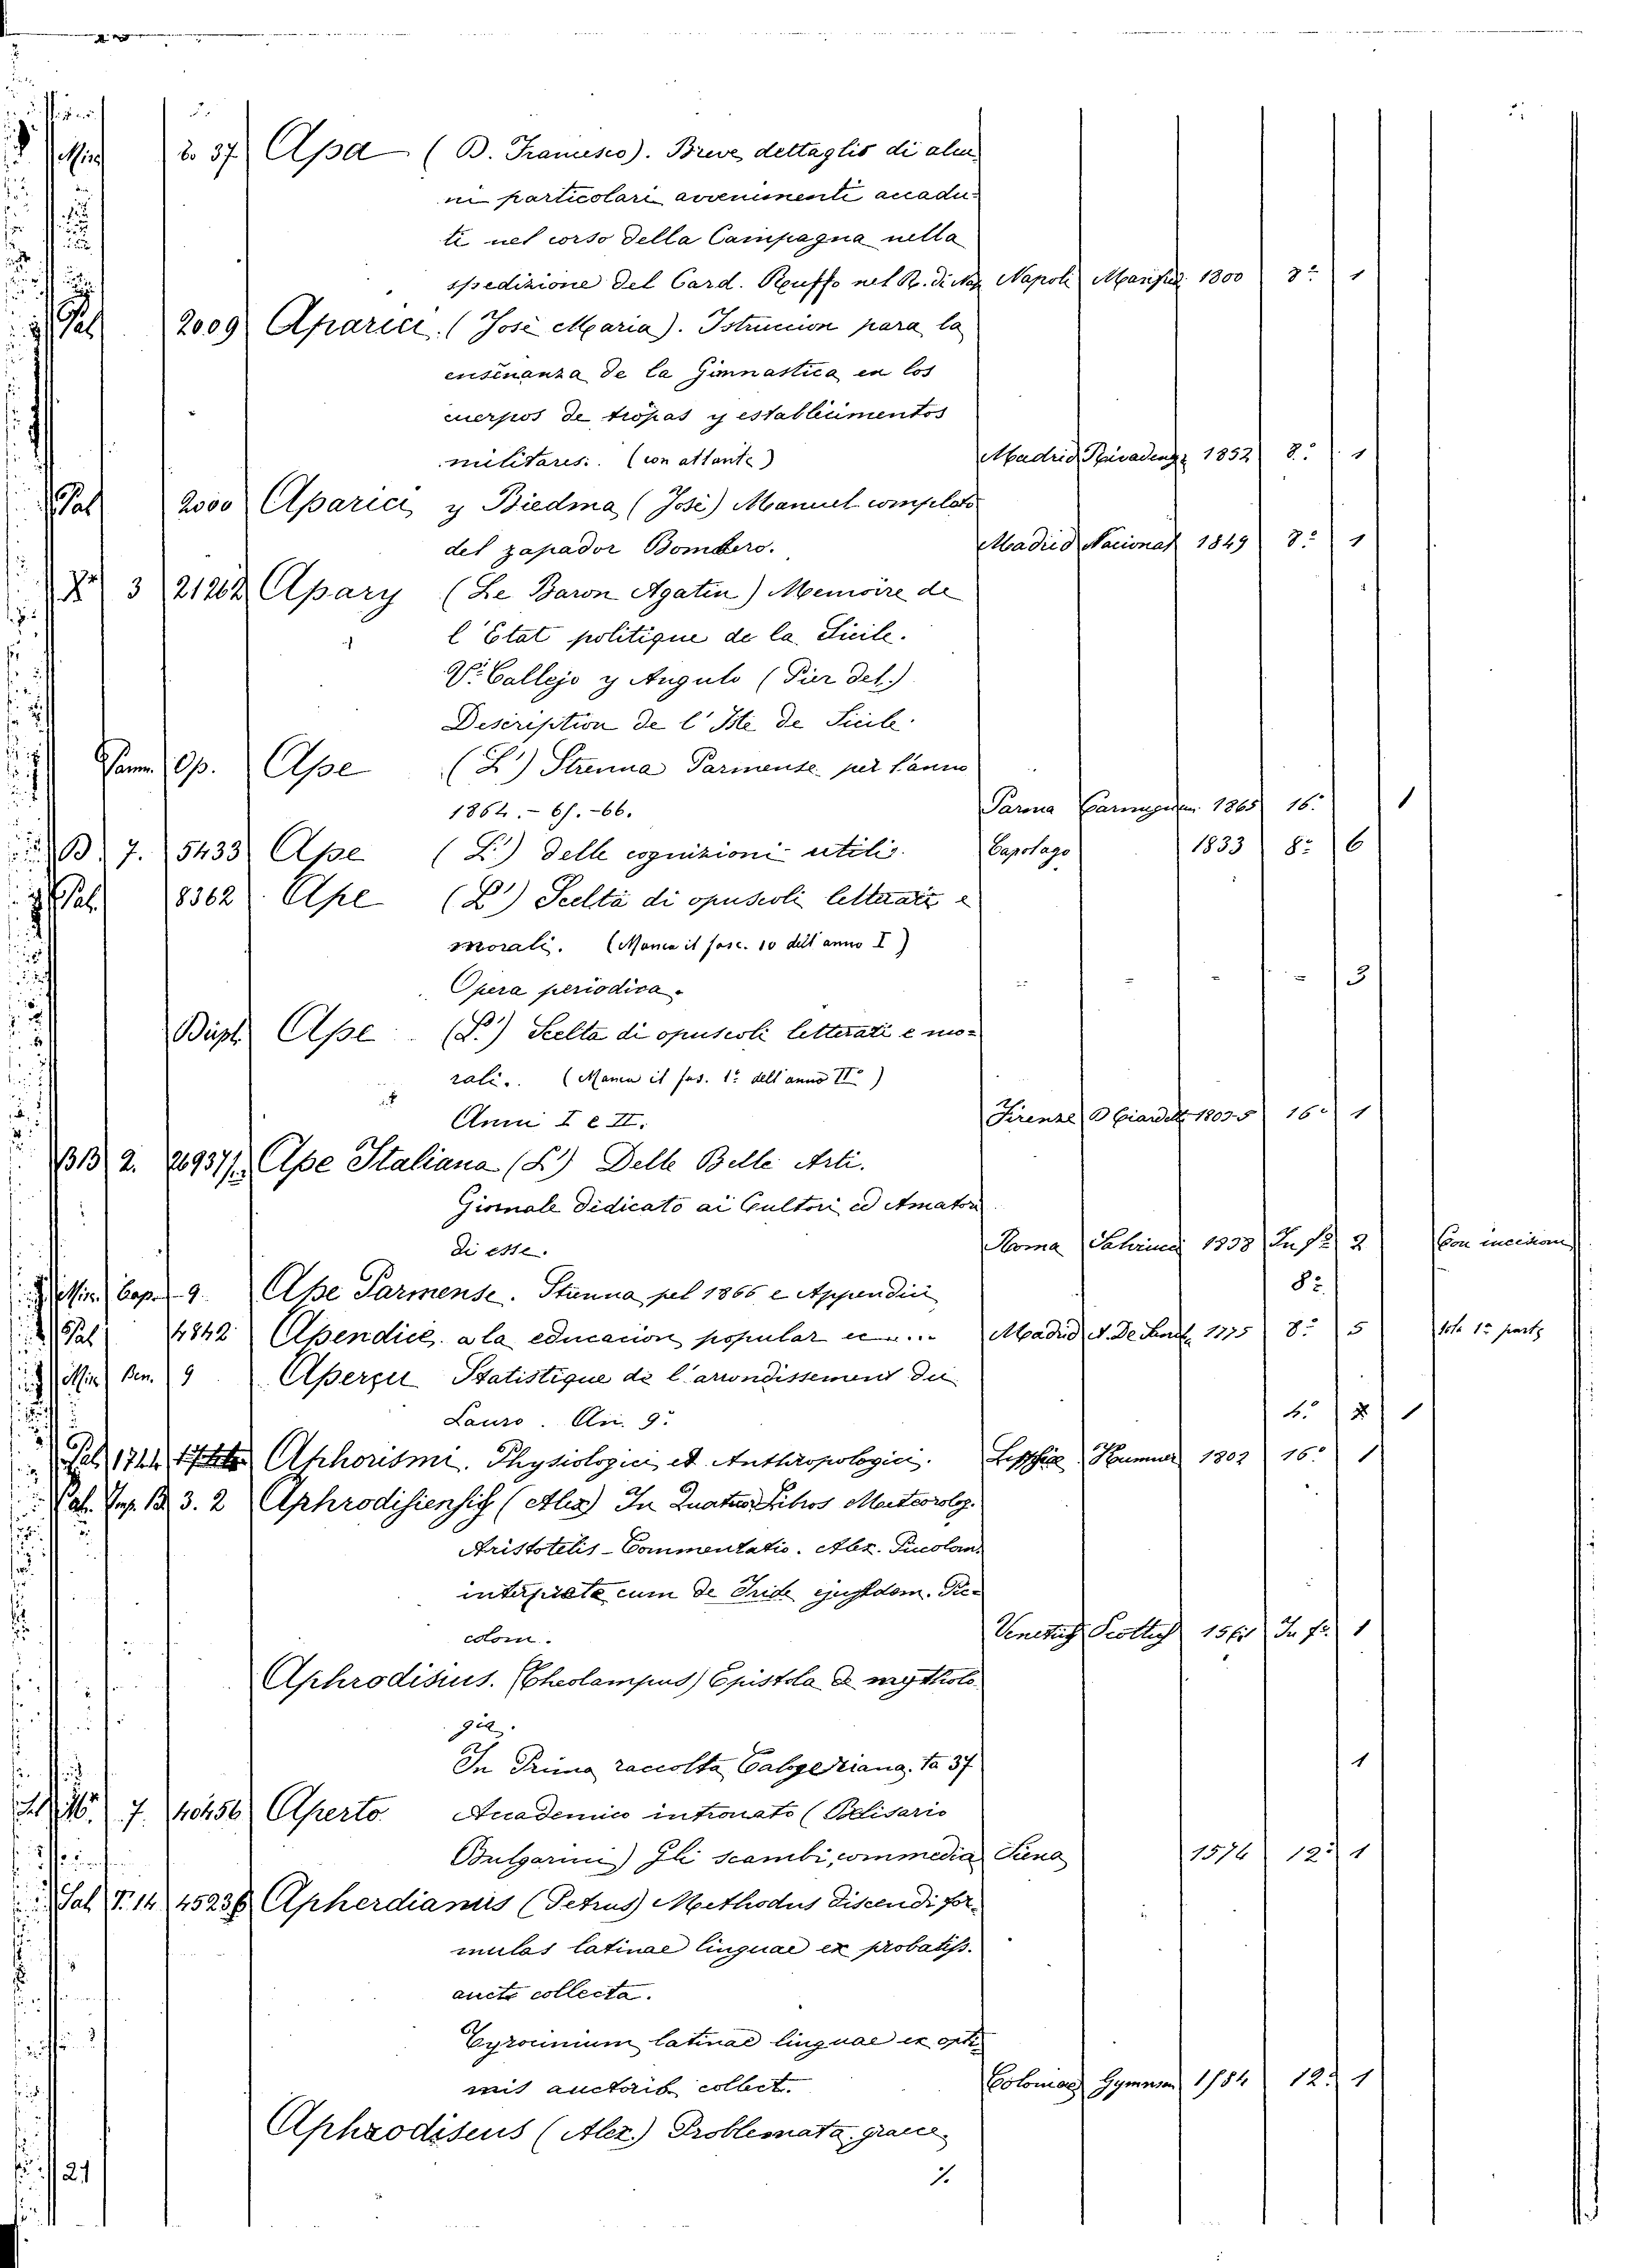 Min 6. 37 Apa (B. Francesco). Breve dettaglio di alcu
ni particolari avvenimenti accadu-
ti nel corso della Campagna nella
spedizione del Card. Ruffo nel R. di Nap Napoli Manfred 1800 8º 1
Pal 2009 Aparici (José Maria). Istruccion para la
ensenanza de la Gimnastica en los
cuerpos de tropas y establecimentos
militares. (con atlante) Madrid Rivadeng. 1852 8º 1
Pal 2000 Aparici y Biedma (José) Manuel completo
del zapador Bombero. Madrid Nacional 1849 8º 1
3 21262 Apary (Le Baron Agatin) Memoire de
l'Etat politique de la Sicile.
V. Callejo y Angulo (Pier del.)
Description de l'Isle de Sicile.
Parm. Op. Ape (L') Strenna Parmense per l'anno
1864.-65.-66. Parma 1865 16º 1
B. 7. 5433 Ape (L') delle cognizioni utili. Capolago 1833 8º 6
Pal. 8362 Ape (L') Scelta di opuscoli letterari e
morali. (Manca il fasc. 10 dell'anno I)
Opera periodica. - - - - 3
Dupl. Ape (L') Scelta di opuscoli letterati e mo-
rali. (Manca il fas. 1º dell'anno IIº)
Anni I e II. Firenze Ciardett. 1803-5 16º 1
BB 2. Ape Italiana (L') Delle Belle Arti.
Giornale didicato ai Cultori ed Amatori
di esse. Roma Salvinei 1838 In fº 2 Con incisioni
Min. Cap. 9. Ape Parmense. Strenna pel 1866 e Appendici 8º
Pal 4842 Apendice a la educacion popular Madrid A. De Sanch. 1775 8º 5 1ª parte
Min Ben. 9 Aperçu Statistique de l'arrondissement du
Lauro. An. 9. 4º 1
Pal 1744 Aphorismi. Physiologici et Anthropologici. Lipsiae Hummer 1802 16º 1
Pal. Imp. B 3. 2 Aphrodisiensis (Alex) In Quatuor Libros Meteorolog.
Aristotelis - Commentatio. Alex. Picolom.
interprete cum de Iride ejusdem. Pic-
colom. Venetiis Scottus 1561 In fº 1
Aphrodisius. (Cheolampus) Epistola de mytholo
gia.
In Prima raccolta Calogeriana. ta 37 1
7. 40456 Aperto Academico intronato (Belisario
Bulgarini) Gli scambi, commedia Siena 1574 12º 1
Sal T. 14 45236 Apherdianus (Petrus) Methodus discendi for-
mulas latinae linguae ex probatiss.
aucte collecta.
Tyrocinium latinae linguae ex opti-
mis auctorib. collect. Coloniae Gymnon 1584 12º 1
Aphrodiseus (Alex.) Problemata graece
21 ./.